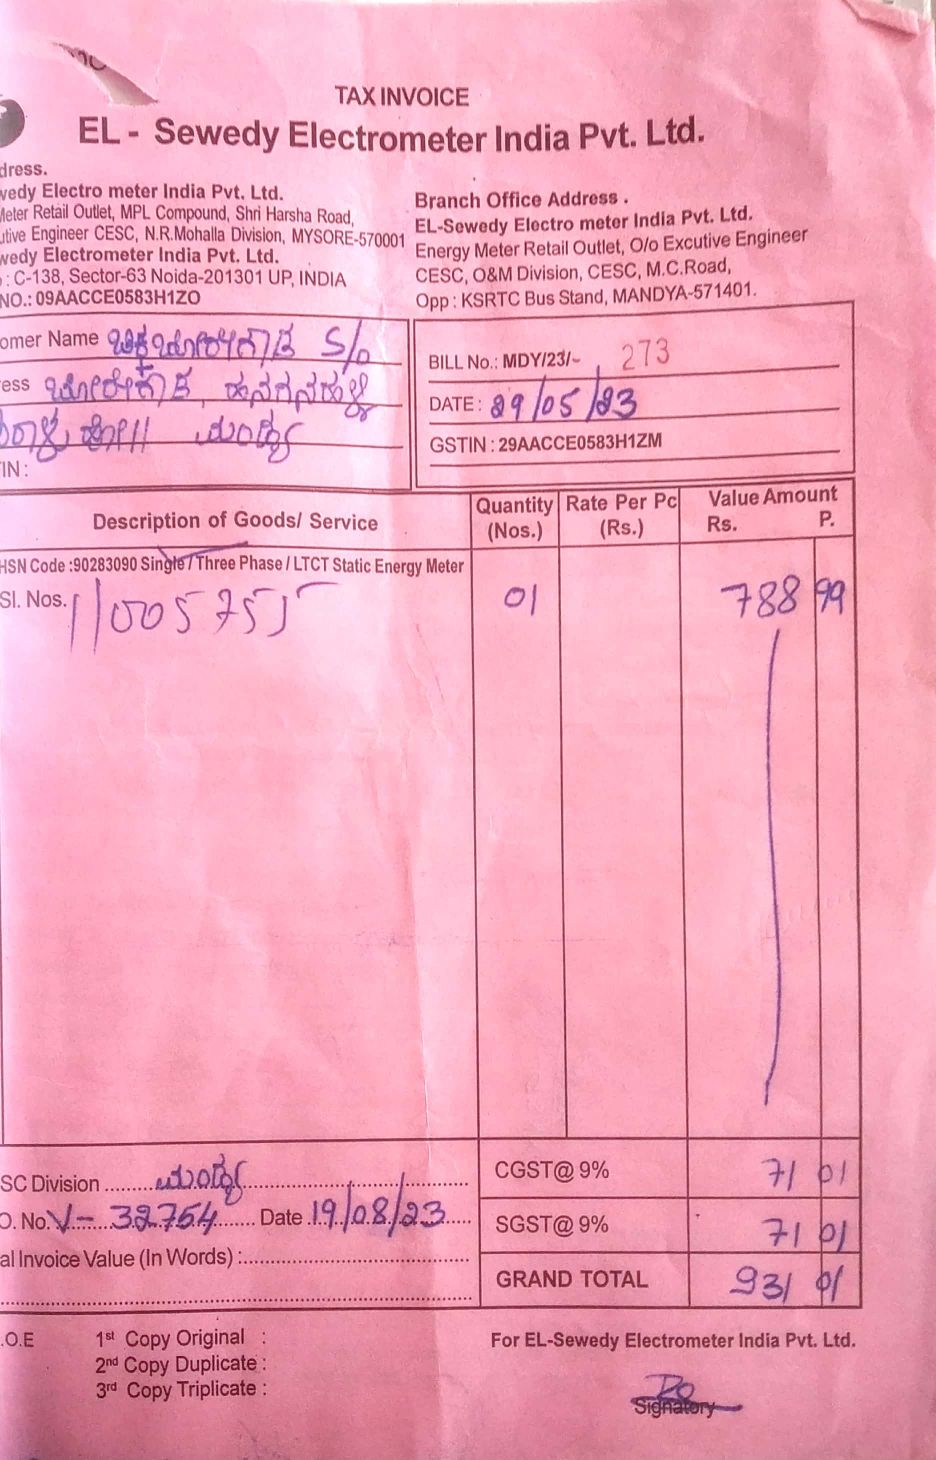 TAX INVOICE
EL - Sewedy Electrometer India Pvt. Ltd.
dress.
wedy Electro meter India Pvt. Ltd.
Meter Retail Outlet, MPL Compound, Shri Harsha Road,
utive Engineer CESC, N.R.Mohalla Division, MYSORE-570001
wedy Electrometer India Pvt. Ltd.
: C-138, Sector-63 Noida-201301 UP, INDIA
NO.: 09AACCE0583H1ZO
Branch Office Address .
EL-Sewedy Electro meter India Pvt. Ltd.
Energy Meter Retail Outlet, O/o Excutive Engineer
CESC, O&M Division, CESC, M.C.Road,
Opp : KSRTC Bus Stand, MANDYA-571401.
omer Name S/o
ess
ಮಂಡ್ಯ
IN :
BILL No.: MDY/23/- 273
DATE : 29/05/23
GSTIN : 29AACCE0583H1ZM
Description of Goods/ Service Quantity (Nos.) Rate Per Pc (Rs.) Value Amount Rs. P.
HSN Code :90283090 Single / Three Phase / LTCT Static Energy Meter
Sl. Nos. 11005755 01 788 99
SC Division ಮಂಡ್ಯ
O. No. V- 32754 Date 19/08/23
al Invoice Value (In Words) :
CGST@ 9% 71 01
SGST@ 9% 71 01
GRAND TOTAL 931 01
.O.E
1st Copy Original :
2nd Copy Duplicate :
3rd Copy Triplicate :
For EL-Sewedy Electrometer India Pvt. Ltd.
Signatory